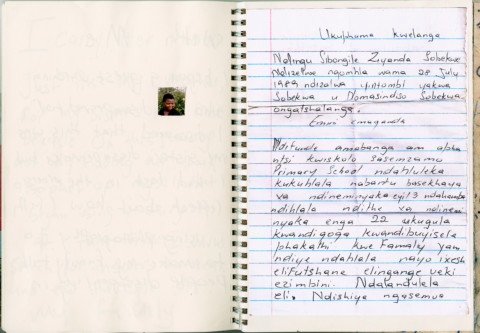 Ukuphuma kwelanga
Ndingu Sibongile Ziyanda Sobekwe
Ndizelwe ngomhla wama 28 July
1989 ndizalwa yintombi yakwa
Sobekwa u Nomasindiso Sobekwa
ongatshatanga.
Emni emaganda
Ndifunde amabanga am aphan
ntsi kwisikolo sasemzamo
Primary School ndatiluleka
kukuhlala nabantu basekhaya
xa ndineminyaka eyi13 ndahamba
ndihlala ndithe xa ndinemi
nyaka enga 22 ukugula
kwandigoga kwandibuyisela
phakathi kwe Famaly yam
ndiye ndahlala nayo ixesh
elifutshane elingange veki
ezimbini. Ndalandulela
eli. Ndishiye ngasemva